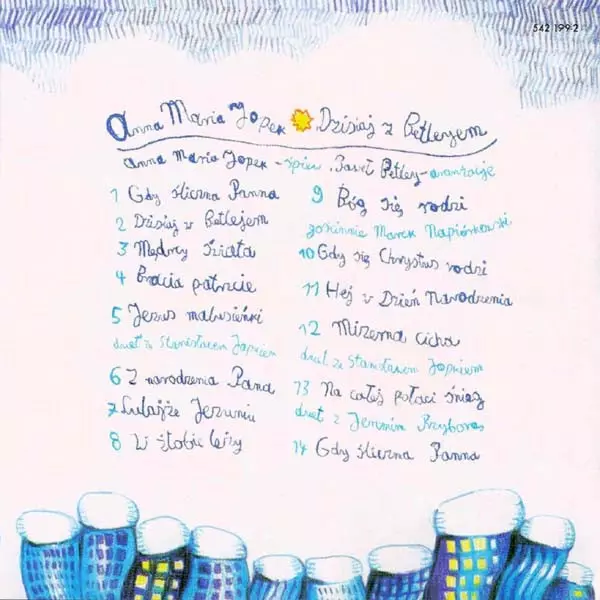 542 199-2
Anna Maria Jopek Dzisiaj z Betlejem
anna Maria Jopek - śpiew, Paweł Betley - aranżacje
1 Gdy śliczna Panna
2 Dzisiaj w Betlejem
3 Mędrcy świata
4 Bracia patrzcie
5 Jezus malusieńki
duet ze Stanisławem Jopkiem
6 Z narodzenia Pana
7 Lulajże Jezuniu
8 W żłobie leży
9 Bóg się rodzi
gościnnie Marek Napiórkowski
10 Gdy się Chrystus rodzi
11 Hej w Dzień Narodzenia
12 Mizerna cicha
duet ze Stanisławem Jopkiem
13 Na całej połaci śnieg
duet z Jeremim Przyborą
14 Gdy śliczna Panna